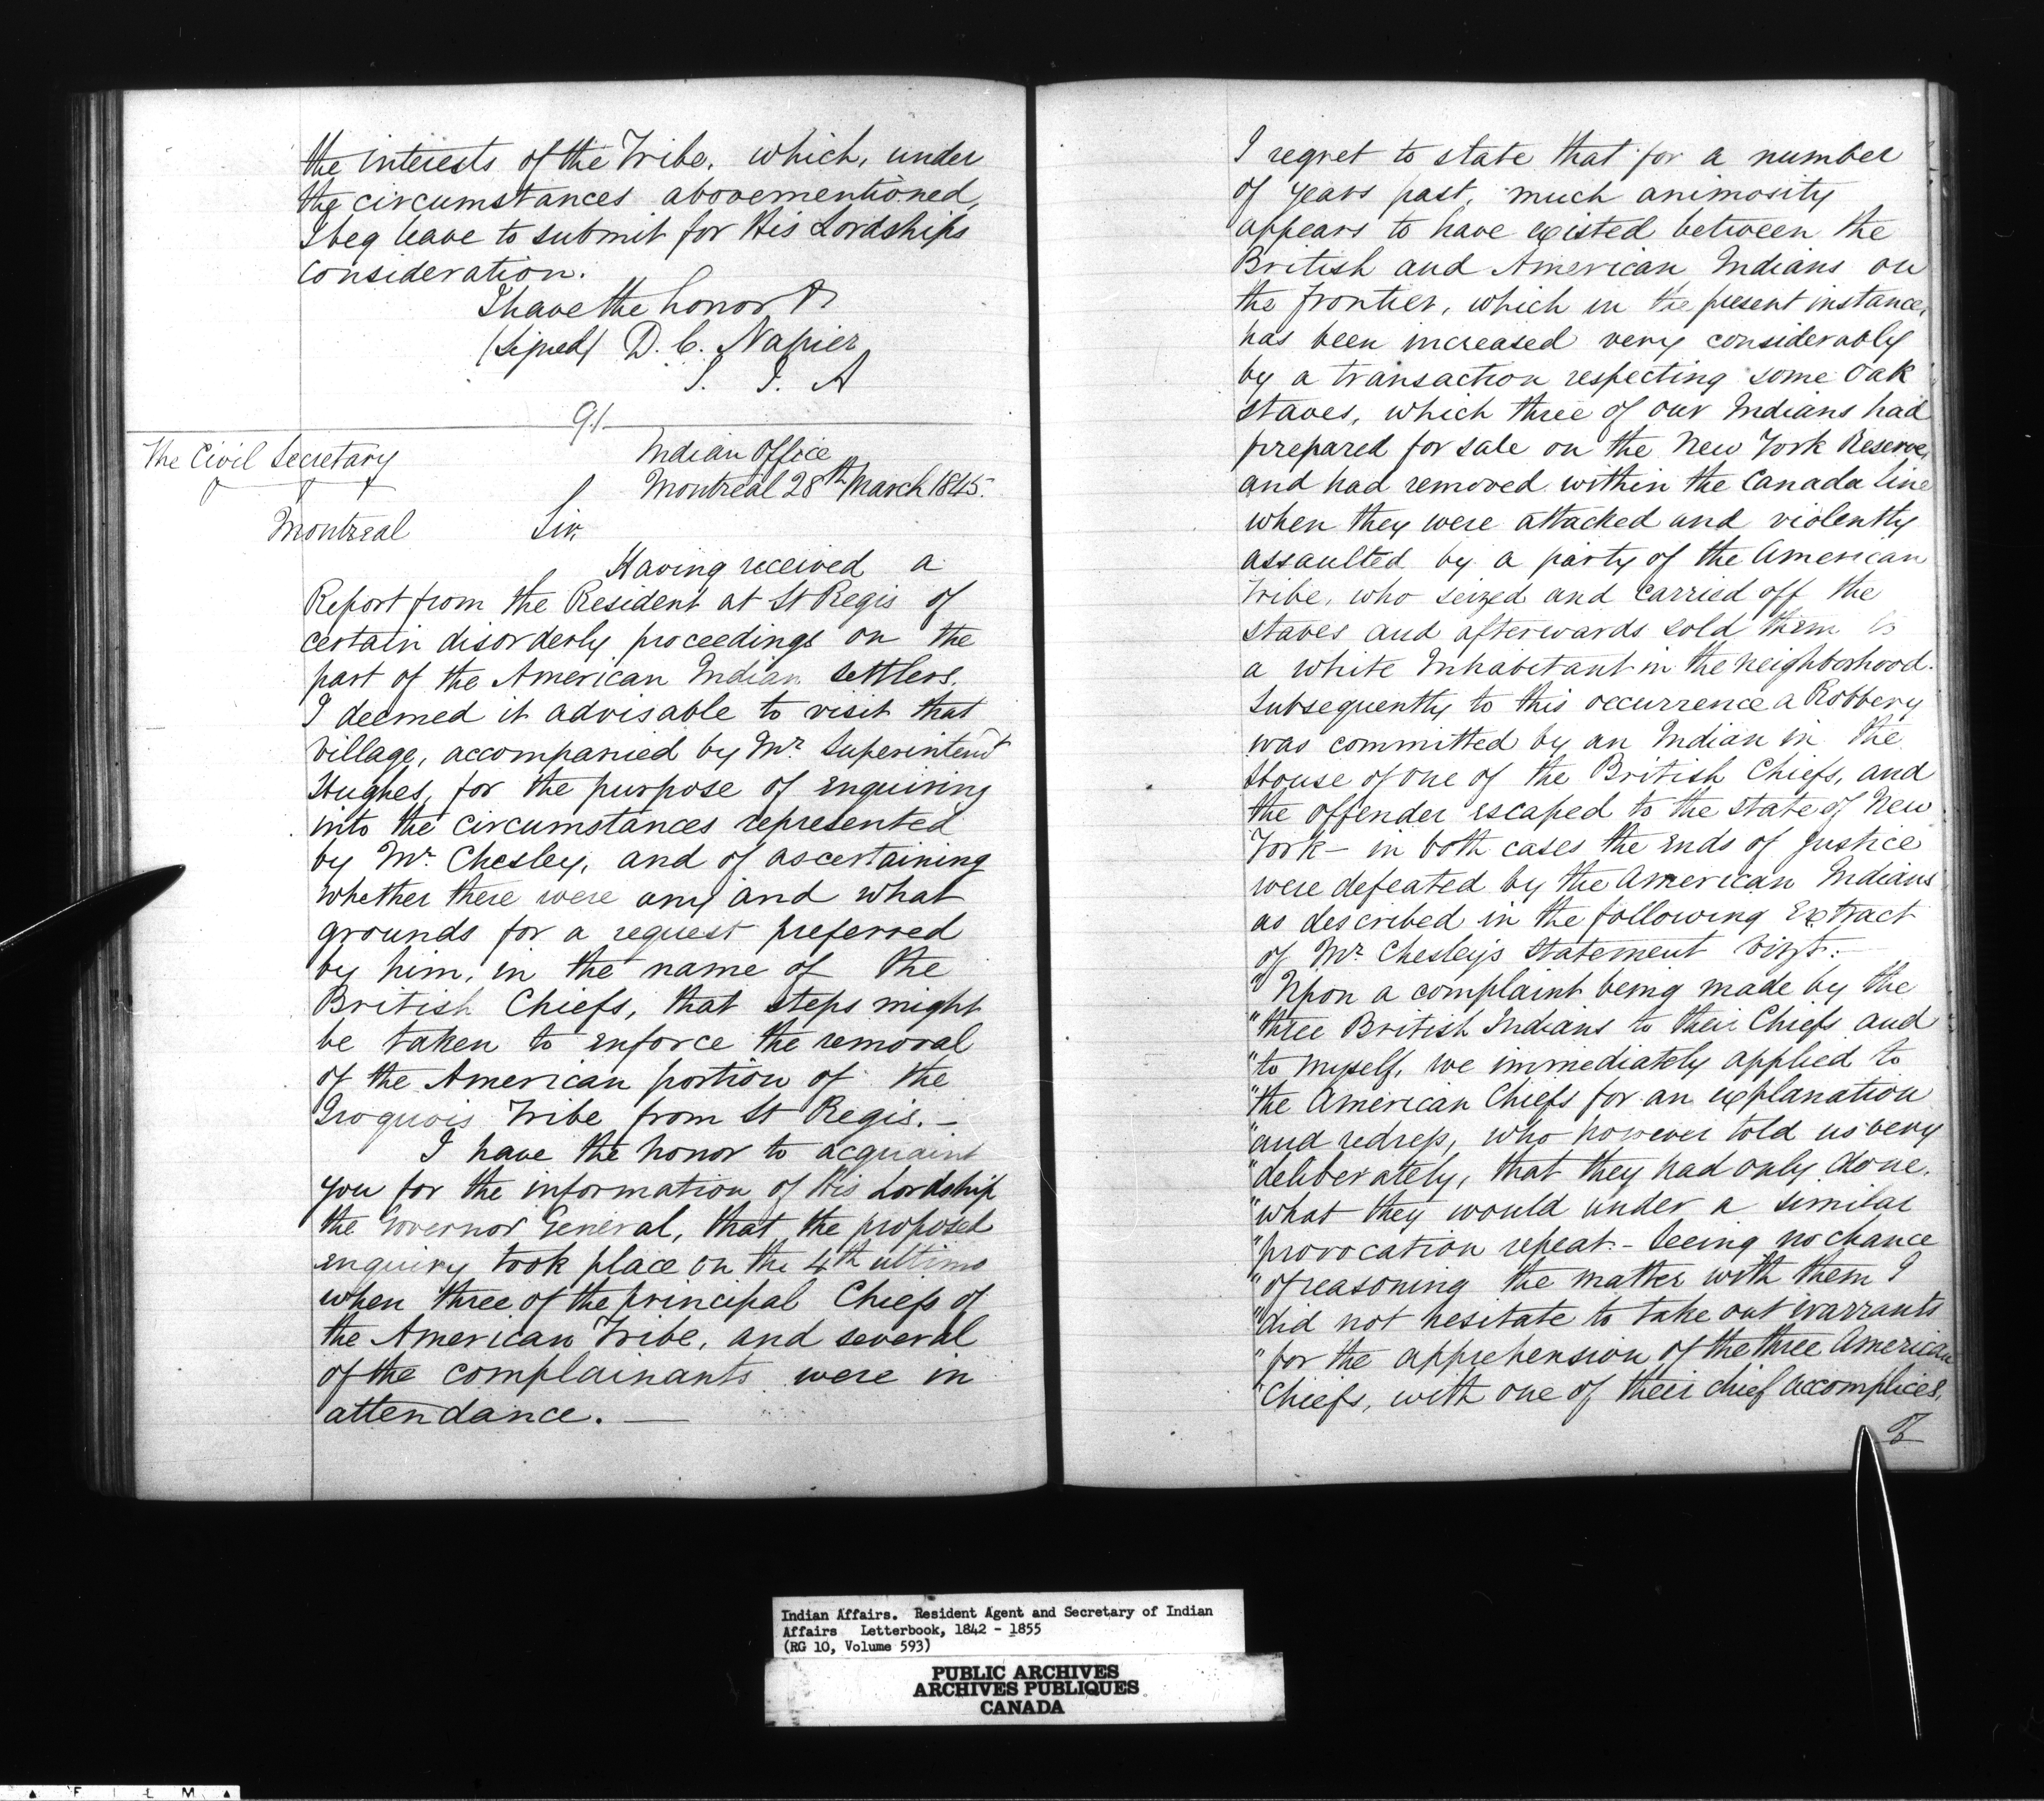 the interests of the Tribe, which, under
the circumstances abovementioned,
I beg leave to submit for His Lordships
consideration.
I have the honor &c
(Signed) D. C. Napier
S. I. A
91
The Civil Secretary
Montreal
Indian Office
Montreal 28th March 1845.
Sir,
Having received a
Report from the Resident at St Regis of
certain disorderly proceedings on the
part of the American Indian settlers.
I deemed it advisable to visit that
Village, accompanied by Mr. Superintendt
Hughes, for the purpose of enquiring
into the circumstances represented
by Mr. Chesley, and of ascertaining
whether there were any and what
grounds for a request preferred
by him, in the name of the
British Chiefs, that steps might
be taken to enforce the removal
of the American portion of the
Iroquois Tribe from St Regis. —
I have the honor to acquaint
you for the information of His Lordship
the Governor General, that the proposed
enquiry took place on the 4th ultimo
when three of the principal Chiefs of
the American Tribe, and several
of the complainants were in
attendance. —
I regret to state that for a number
of years past, much animosity
appears to have existed between the
British and American Indians on
the frontier, which in the present instance,
has been increased very considerably
by a transaction respecting some Oak
staves, which three of our Indians had
prepared for sale on the New York Reserve,
and had removed within the Canada line
when they were attacked and violently
assaulted by a party of the American
Tribe, who seized and carried off the
staves and afterwards sold them to
a white Inhabitant in the neighborhood.
Subsequently to this occurrence a Robbery
was committed by an Indian in the
House of one of the British Chiefs, and
the offender escaped to the State of New
York — in both cases the ends of justice
were defeated by the American Indians
as described in the following Extract
of Mr. Chesley's statement Vizt:—
"Upon a complaint being made by the
"three British Indians to their Chiefs and
"to myself, we immediately applied to
"the American Chiefs for an explanation
"and redress, who however told us very
"deliberately, that they had only done,
"what they would under a similar
"provocation repeat. — Seeing no chance
"of reasoning the matter with them I
"did not hesitate to take out warrants
"for the apprehension of the three American
"Chiefs, with one of their chief accomplices,
Indian Affairs. Resident Agent and Secretary of Indian
Affairs Letterbook, 1842 - 1855
(RG 10, Volume 593)
PUBLIC ARCHIVES
ARCHIVES PUBLIQUES
CANADA
FILM